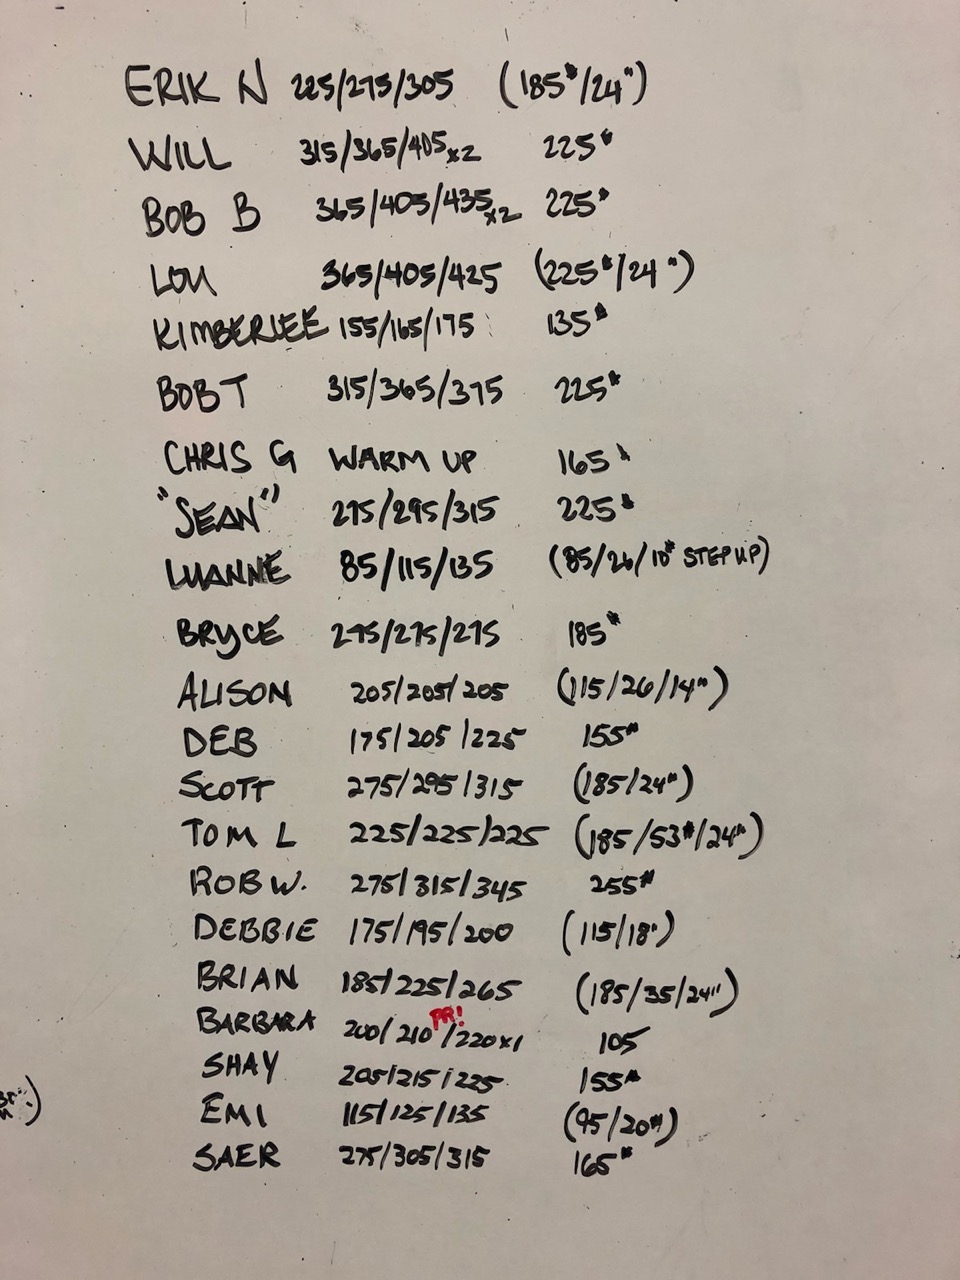 ERIK N 225/275/305 (185#/24")
WILL 315/365/405x2 225#
BOB B 365/405/435x2 225#
LOU 365/405/425 (225#/24")
KIMBERLEE 155/165/175 135#
BOB T 315/365/375 225#
CHRIS G WARM UP 165#
"SEAN" 275/295/315 225#
LUANNE 85/115/135 (85/26/10# STEP UP)
BRYCE 275/275/275 185#
ALISON 205/205/205 (115/26/14")
DEB 175/205/225 155#
SCOTT 275/295/315 (185/24")
TOM L 225/225/225 (185/53#/24")
ROB W. 275/315/345 255#
DEBBIE 175/195/200 (115/18")
BRIAN 185/225/265 (185/35/24")
BARBARA 200/210 PR!/220x1 105
SHAY 205/215/225 155#
EMI 115/125/135 (95/20")
SAER 275/305/315 165#